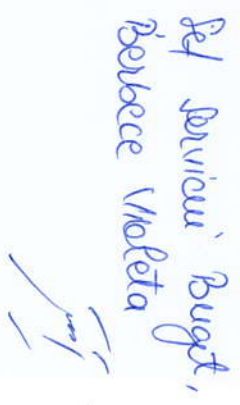 Șef Serviciu Buget,
Berbece Violeta